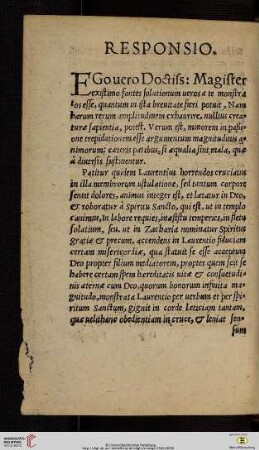 RESPONSIO.
EGo vero Doctiss: Magister
existimo fontes solationum veros a te monstra
tos esse, quantum in ista brevitate fieri potuit, Nam
harum rerum amplitudinem exhaurire, nullius crea-
turæ sapientia, potest. Verum est, minorem in passi-
one trepidationem esse argumentum magnitudinis a-
nimorum; cæteris paribus, si æqualia sint mala, quæ
à diversis sustinentur.
Patitur quidem Laurentius horrendos cruciatus
in illa membrorum ustulatione, sed tantum corpore
sentit dolores, animus integer est, et lætatur in Deo,
& roboratur à Spiritu Sancto, qui est, ut in templo
canimus, in labore requies, in æstu temperies, in fletu
solatium, seu, ut in Zacharia nominatur Spiritus
gratiæ & precum, accendens in Laurentio fiduciam
certam misericordiæ, qua statuit se esse acceptum
Deo propter filium mediatorem, propter quem scit se
habere certam spem hæreditatis vitæ & consuetudi-
nis æternæ cum Deo, quorum bonorum infinita ma-
gnitudo, monstrata Laurentio per verbum et per spi-
ritum Sanctum, gignit in corde læticiam tantam,
quæ veluti
in cruce, & leniat sen-
sum